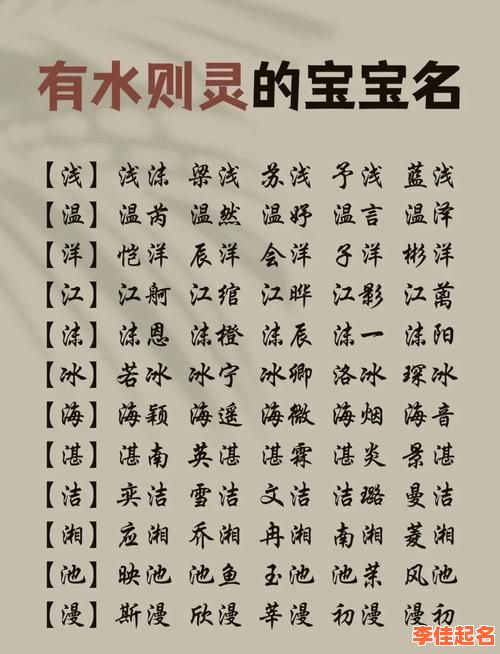 有水则灵的宝宝名
【浅】 浅沫 梁浅 苏浅 予浅 蓝浅
【温】 温芮 温然 温妤 温言 温泽
【洋】 恺洋 辰洋 会洋 子洋 彬洋
【江】 江舸 江绾 江晔 江影 江蓠
【沫】 沫恩 沫橙 沫辰 沫一 沫阳
【冰】 若冰 冰宁 冰卿 洛冰 琛冰
【海】 海颖 海遥 海微 海烟 海音
【湛】 湛南 英湛 湛霖 湛炎 景湛
【洁】 奕洁 雪洁 文洁 洁璐 曼洁
【湘】 应湘 乔湘 冉湘 南湘 菱湘
【池】 映池 池鱼 玉池 池茉 风池
【漫】 斯漫 欣漫 莘漫 初漫 漫初
李佳起名